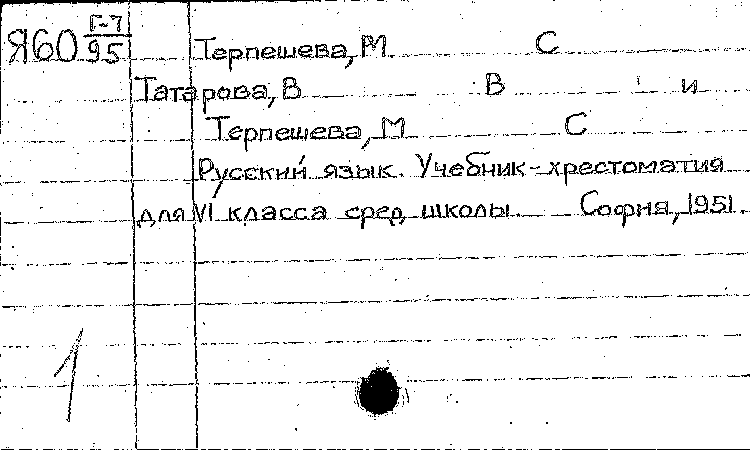 Я60 Г-7/95 Терпешева, М. С
Татарова, В В и
Терпешева, М С
Русский язык. Учебник-хрестоматия
для VI класса сред школы. София, 1951.
1